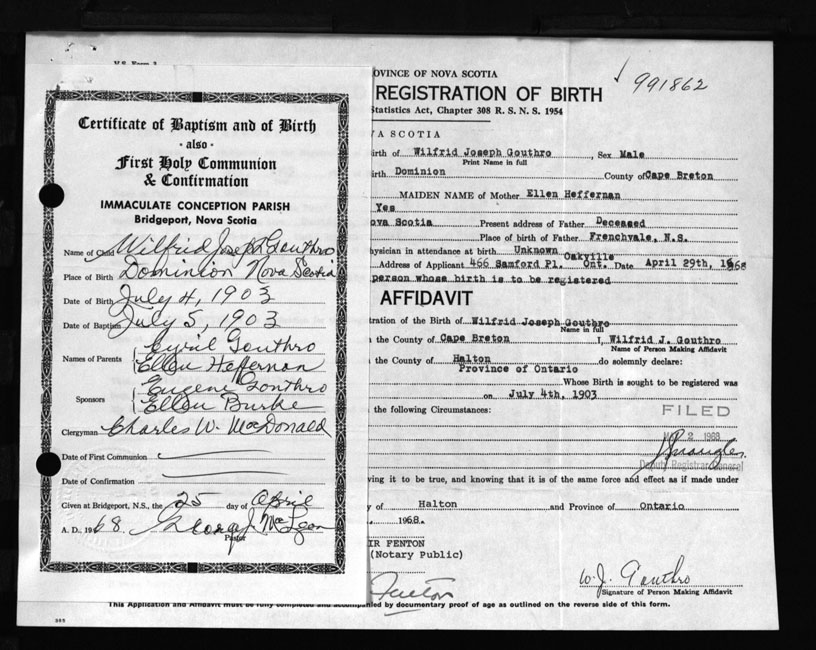 Certificate of Baptism and of Birth
- also -
First Holy Communion
& Confirmation
IMMACULATE CONCEPTION PARISH
Bridgeport, Nova Scotia
Name of Child Wilfrid Joseph Gouthro
Place of Birth Dominion Nova Scotia
Date of Birth July 4, 1903
Date of Baptism July 5, 1903
Names of Parents Cyril Gouthro
Ellen Heffernan
Sponsors Eugene Gouthro
Ellen Burke
Clergyman Charles W. MacDonald
Date of First Communion
Date of Confirmation
Given at Bridgeport, N.S., the 25 day of April
A. D., 1968. George J. McLean
Pastor
OVINCE OF NOVA SCOTIA
991862
REGISTRATION OF BIRTH
Statistics Act, Chapter 308 R. S. N. S. 1954
VA SCOTIA
irth of Wilfrid Joseph Gouthro, Sex Male
Print Name in full
irth Dominion County of Cape Breton
MAIDEN NAME of Mother Ellen Heffernan
Yes
ova Scotia Present address of Father Deceased
Place of birth of Father Frenchvale, N.S.
hysician in attendance at birth Unknown
Address of Applicant 466 Samford Pl. Oakville Ont. Date April 29th, 1968
person whose birth is to be registered
AFFIDAVIT
tration of the Birth of Wilfrid Joseph Gouthro
Name in full
n the County of Cape Breton I, Wilfrid J. Gouthro
Name of Person Making Affidavit
the County of Halton do solemnly declare:
Province of Ontario
Whose Birth is sought to be registered was
on July 4th, 1903
the following Circumstances:
FILED
2 1968
Deputy Registrar General
ving it to be true, and knowing that it is of the same force and effect as if made under
y of Halton and Province of Ontario
1968.
IR FENTON
(Notary Public)
Fenton
W. J. Gouthro
Signature of Person Making Affidavit
This Application and Affidavit must be fully completed and accompanied by documentary proof of age as outlined on the reverse side of this form.